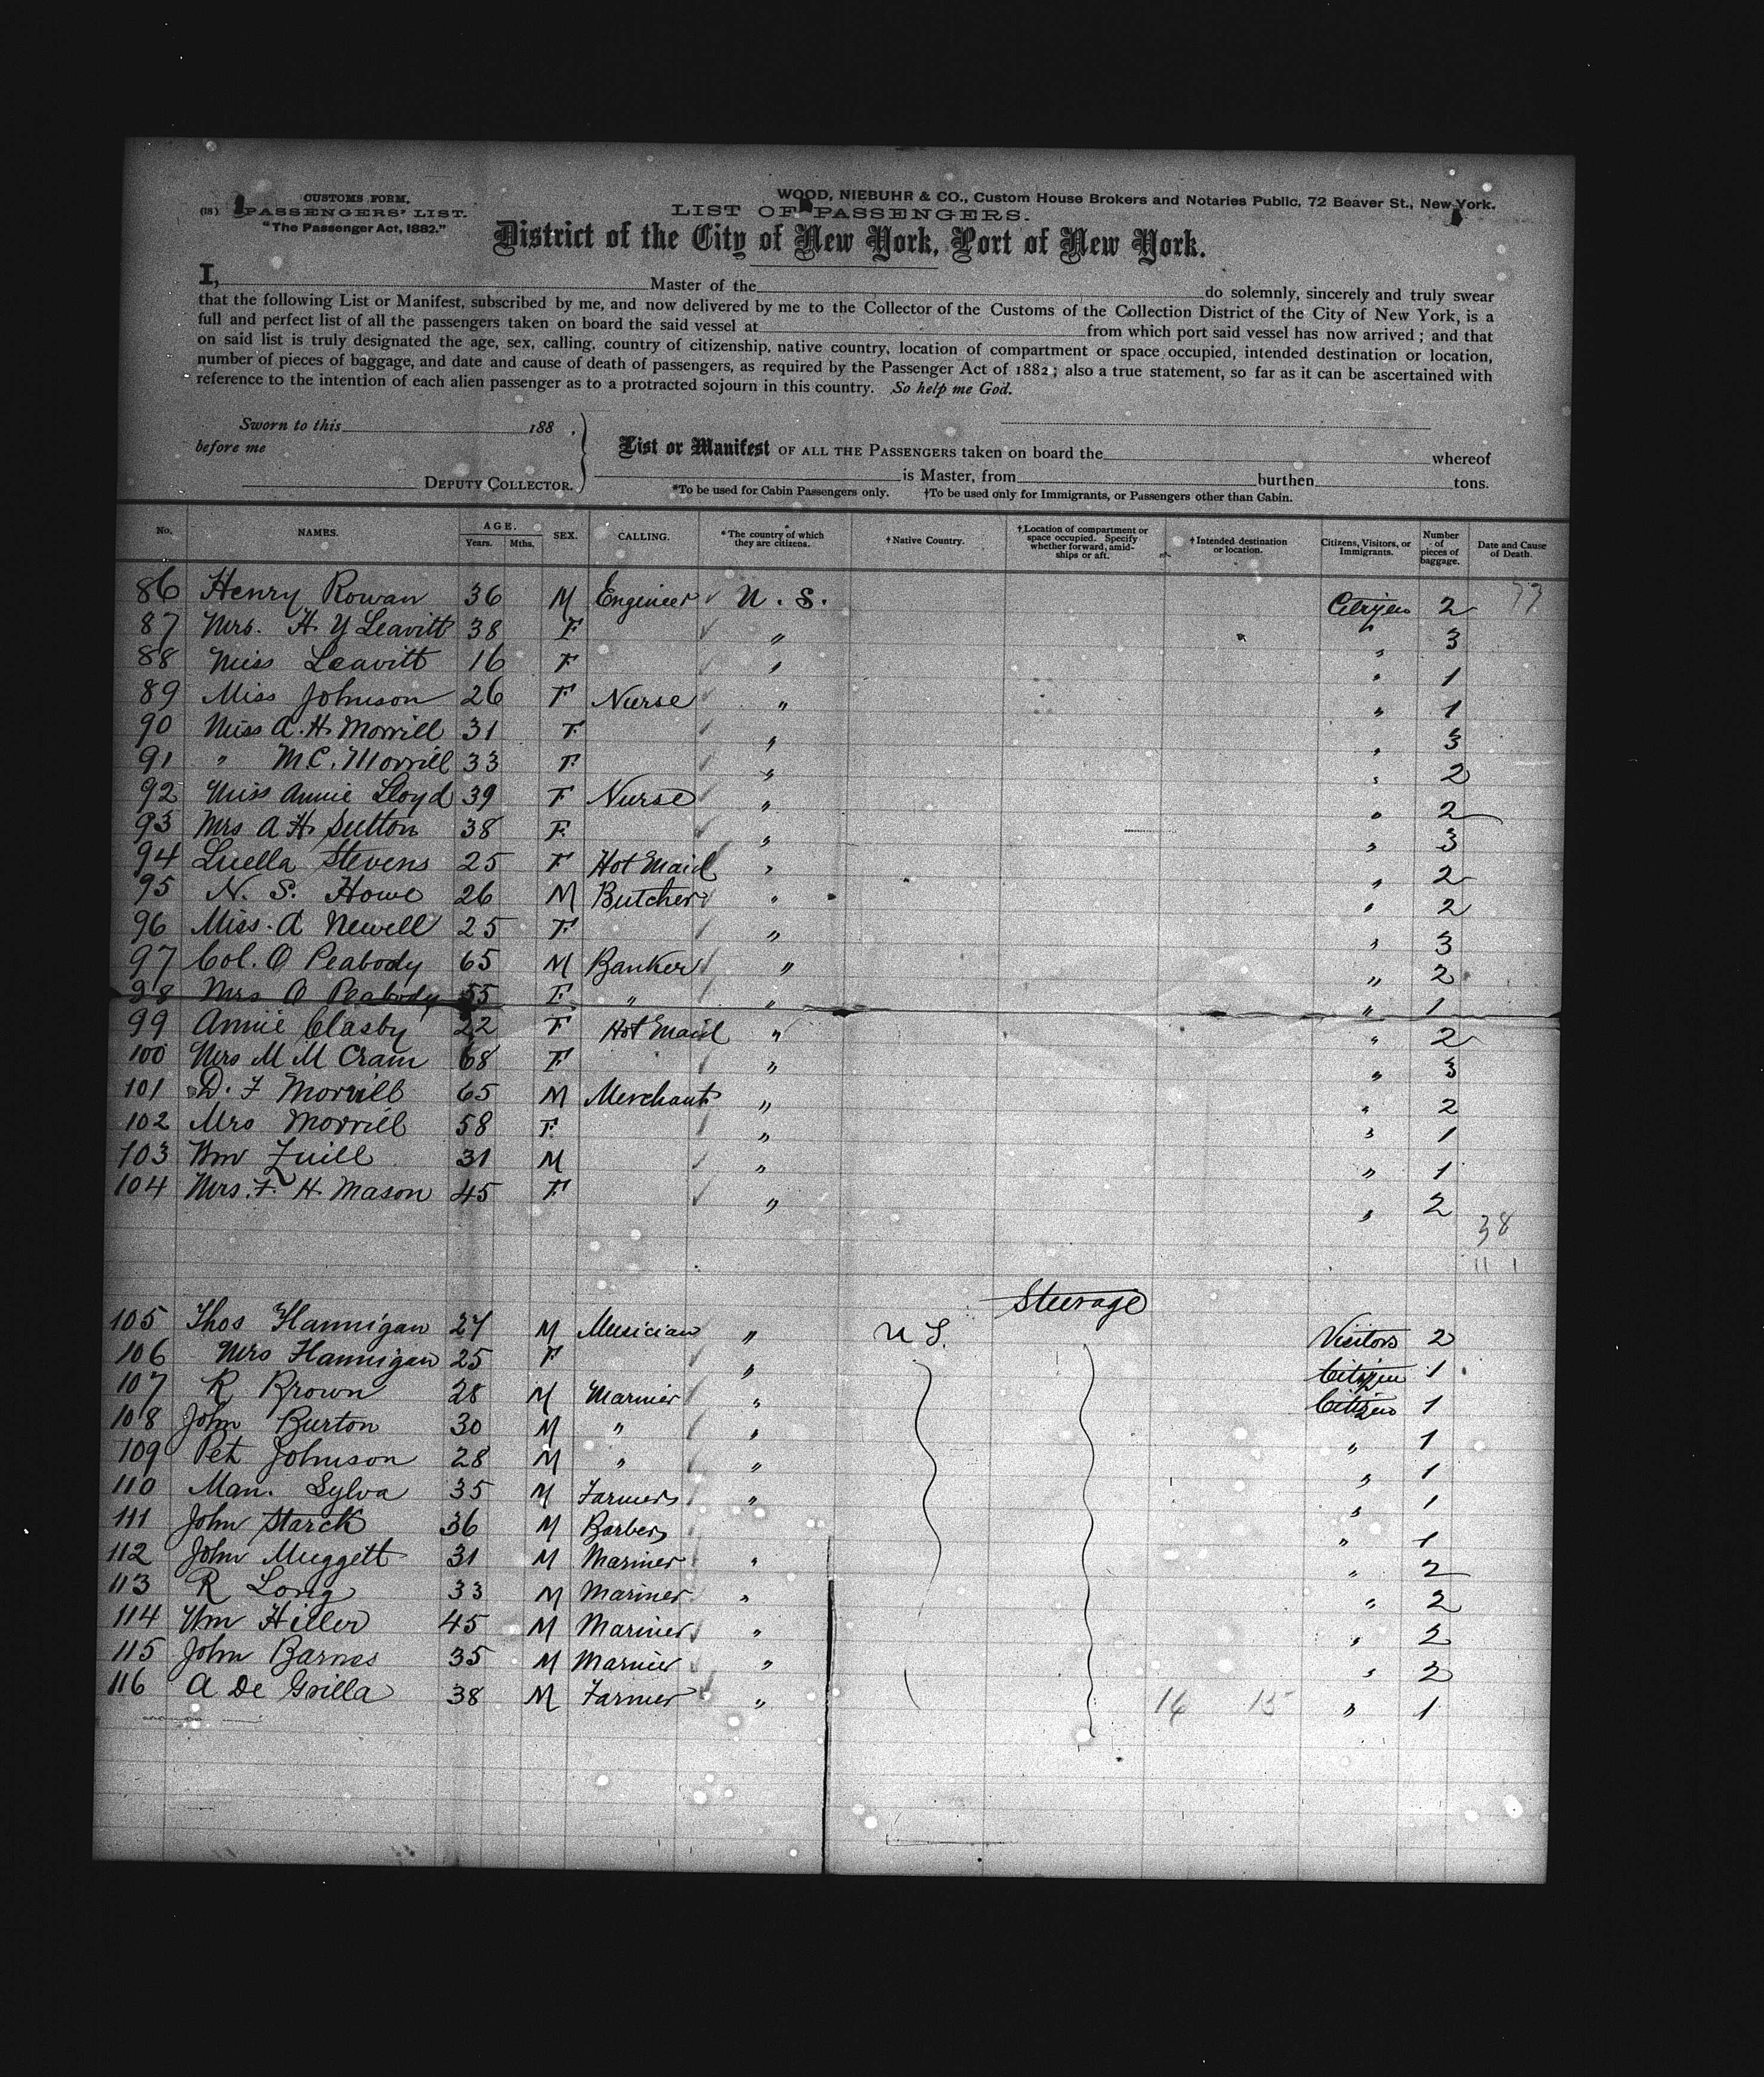 CUSTOMS FORM.
WOOD, NIEBUHR & CO., Custom House Brokers and Notaries Public, 72 Beaver St., New York.
(18) PASSENGERS' LIST.
LIST OF PASSENGERS.
"The Passenger Act, 1882."
District of the City of New York, Port of New York.
I, Master of the do solemnly, sincerely and truly swear
that the following List or Manifest, subscribed by me, and now delivered by me to the Collector of the Customs of the Collection District of the City of New York, is a
full and perfect list of all the passengers taken on board the said vessel at from which port said vessel has now arrived; and that
on said list is truly designated the age, sex, calling, country of citizenship, native country, location of compartment or space occupied, intended destination or location,
number of pieces of baggage, and date and cause of death of passengers, as required by the Passenger Act of 1882; also a true statement, so far as it can be ascertained with
reference to the intention of each alien passenger as to a protracted sojourn in this country. So help me God.
Sworn to this 188 .
before me
List or Manifest OF ALL THE PASSENGERS taken on board the whereof
DEPUTY COLLECTOR. is Master, from burthen tons.
*To be used for Cabin Passengers only. †To be used only for Immigrants, or Passengers other than Cabin.
No. NAMES. AGE. Years. Mths. SEX. CALLING. *The country of which they are citizens. †Native Country. †Location of compartment or space occupied. Specify whether forward, amidships or aft. †Intended destination or location. Citizens, Visitors, or Immigrants. Number of pieces of baggage. Date and Cause of Death.
86 Henry Rowan 36 M Engineer U. S. Citizen 2 77
87 Mrs. H. Y Leavitt 38 F " " 3
88 Miss Leavitt 16 F " " 1
89 Miss Johnson 26 F Nurse " " 1
90 Miss A. H. Morrill 31 F " " 3
91 " M. C. Morrill 33 F " " 2
92 Miss Annie Lloyd 39 F Nurse " " 2
93 Mrs A H Sutton 38 F " " 3
94 Luella Stevens 25 F Hot Maid " " 2
95 N. S. Howe 26 M Butcher " " 2
96 Miss. A Newell 25 F " " 3
97 Col. O Peabody 65 M Banker " " 2
98 Mrs O Peabody 55 F " " " 1
99 Annie Clasby 22 F Hot Maid " " 2
100 Mrs M M Cram 68 F " " 3
101 D. F Morrill 65 M Merchant " " 2
102 Mrs Morrill 58 F " " 1
103 Wm Zuill 31 M " " 1
104 Mrs. F. H. Mason 45 F " " 2
38
11 1
Steerage
105 Thos Hannigan 27 M Musician " U S. Visitors 2
106 Mrs Hannigan 25 F " Citizen 1
107 R Brown 28 M Marnier " Citizen 1
108 John Burton 30 M " " " 1
109 Pet Johnson 28 M " " " 1
110 Man. Sylva 35 M Farmer " " 1
111 John Starck 36 M Barber " 1
112 John Muggett 31 M Mariner " " 2
113 R Long 33 M Mariner " " 2
114 Wm Hiller 45 M Mariner " " 2
115 John Barnes 35 M Marnier " " 2
116 A De Grilla 38 M Farmer " 14 15 " 1